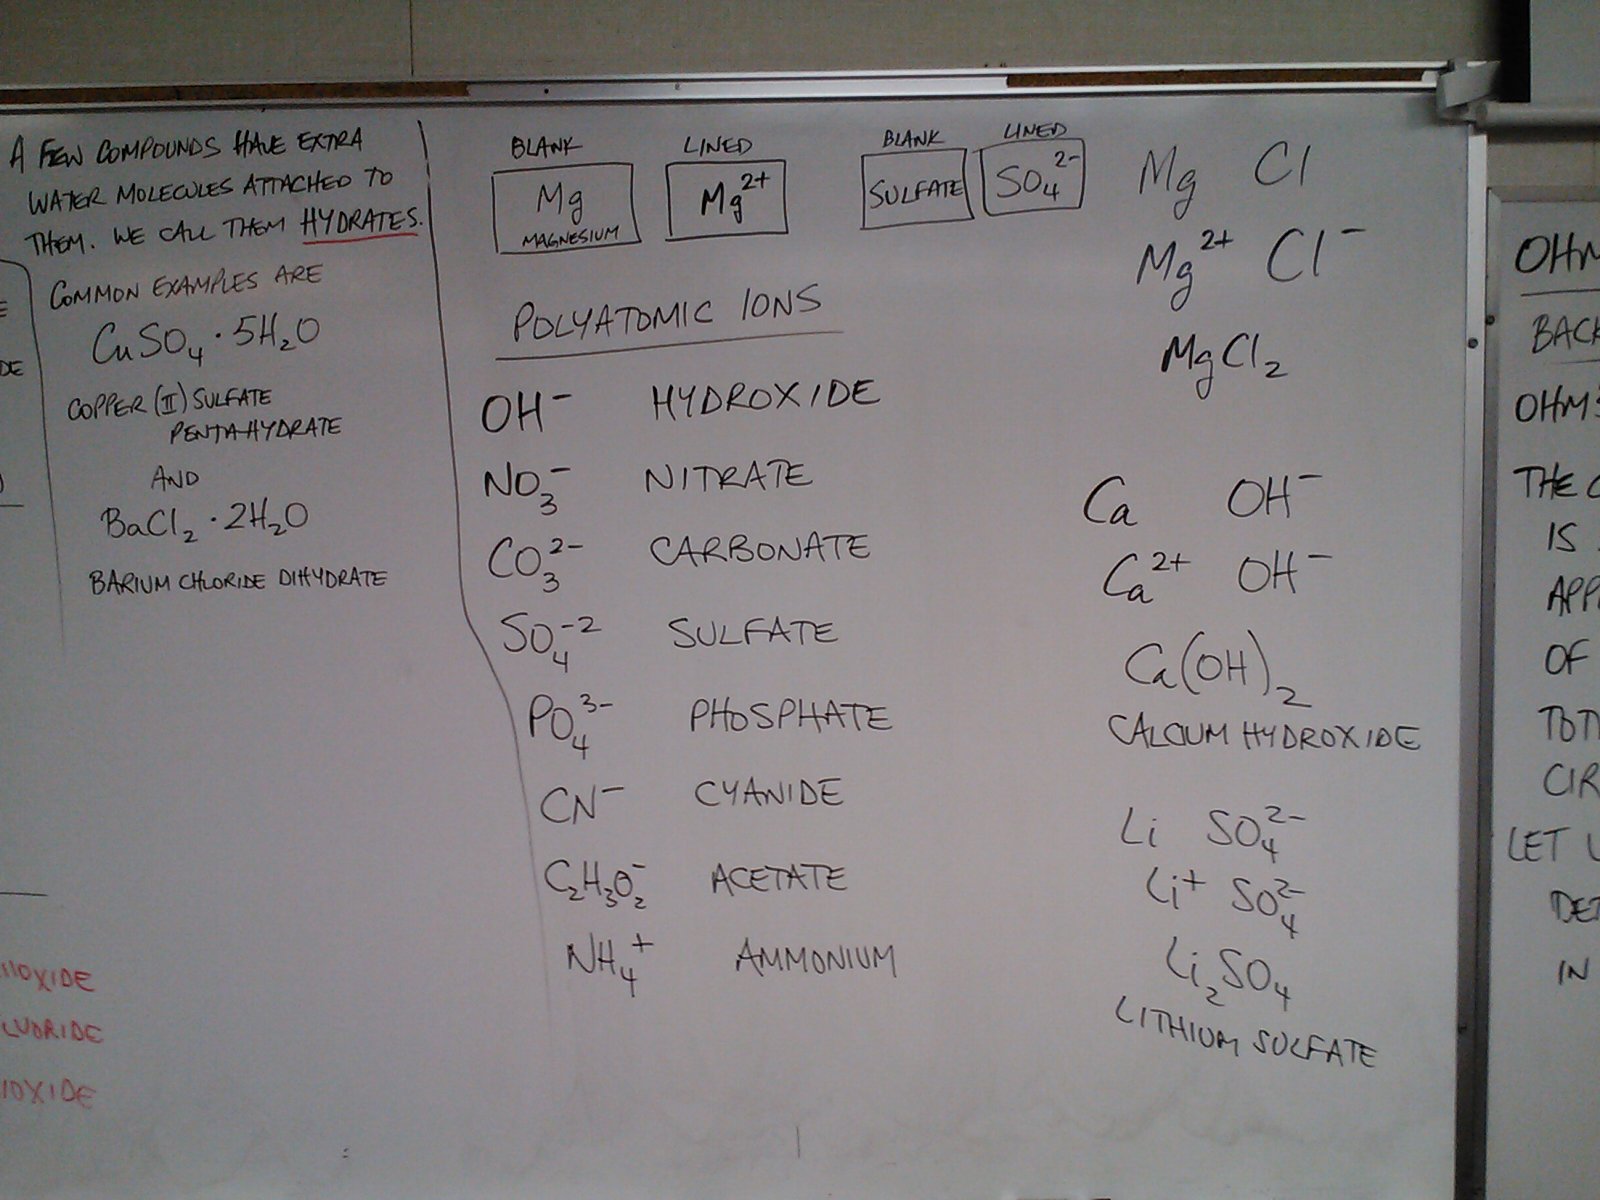 A FEW COMPOUNDS HAVE EXTRA
WATER MOLECULES ATTACHED TO
THEM. WE CALL THEM HYDRATES.
COMMON EXAMPLES ARE
CuSO₄ · 5H₂O
COPPER (II) SULFATE
PENTAHYDRATE
AND
BaCl₂ · 2H₂O
BARIUM CHLORIDE DIHYDRATE
BLANK LINED
Mg Mg²⁺
MAGNESIUM
BLANK LINED
SULFATE SO₄²⁻
POLYATOMIC IONS
OH⁻ HYDROXIDE
NO₃⁻ NITRATE
CO₃²⁻ CARBONATE
SO₄⁻² SULFATE
PO₄³⁻ PHOSPHATE
CN⁻ CYANIDE
C₂H₃O₂⁻ ACETATE
NH₄⁺ AMMONIUM
Mg Cl
Mg²⁺ Cl⁻
MgCl₂
Ca OH⁻
Ca²⁺ OH⁻
Ca(OH)₂
CALCIUM HYDROXIDE
Li SO₄²⁻
Li⁺ SO₄²⁻
Li₂SO₄
LITHIUM SULFATE
THE
IS
OF
LET
IN